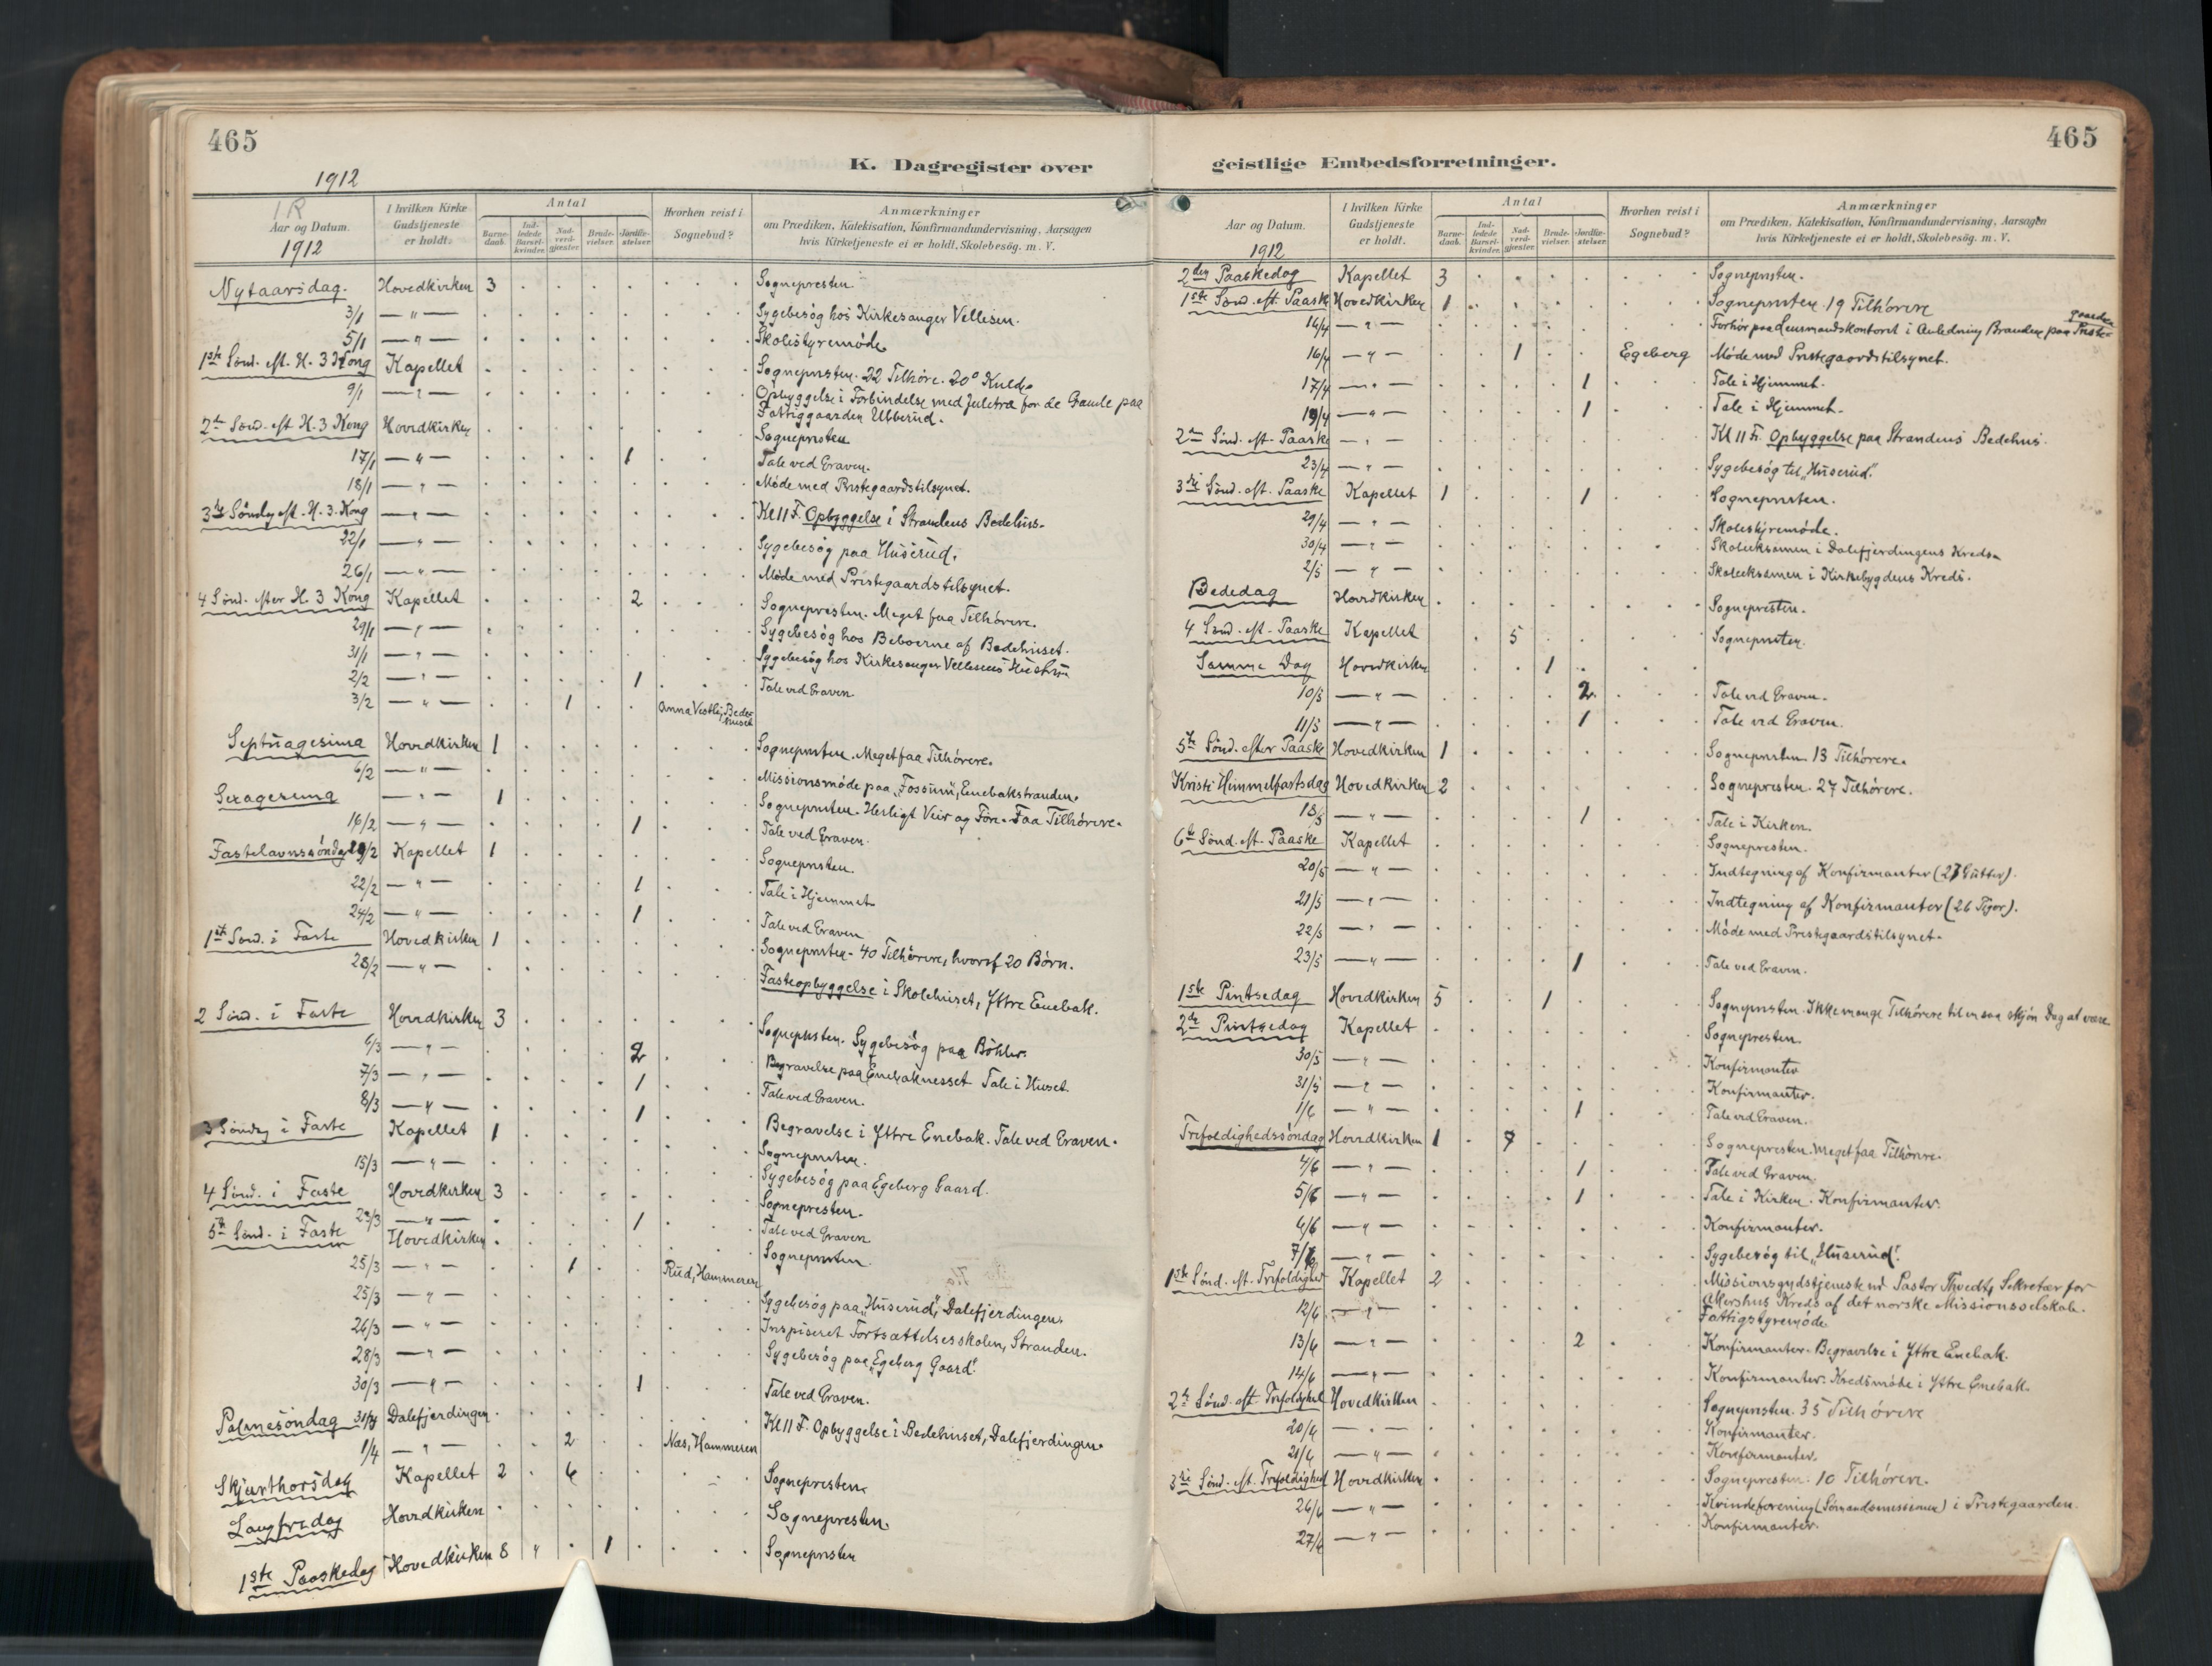 465
1912
K. Dagregister over
1R
Aar og Datum.
1912
I hvilken Kirke Gudstjeneste er holdt.
Antal
Barne-daab.
Ind-ledede Barsel-kvinder.
Nad-verd-gjester.
Brude-vielser.
Jordfæ-stelser.
Hvorhen reist i Sognebud?
Anmærkninger
om Prædiken, Katekisation, Konfirmandundervisning, Aarsagen
hvis Kirketjeneste ei er holdt, Skolebesög. m. V.
Nytaarsdag. Hovedkirken 3 Sognepresten
3/1 — " — Sygebesög hos Kirkesanger Vellesen.
5/1 — " — Skolestyremöde
1ste Sönd. eft. H. 3 Kong Kapellet Sognepresten. 22 Tilhöre. 20° Kulde
9/1 — " — Opbyggelse i Forbindelse med Juletræ for de Gamle paa
Fattiggaarden Ubberud.
2den Sönd. eft H. 3 Kong Hovedkirken Sognepresten
17/1 — " — 1 Tale ved Graven.
18/1 — " — Möde med Prestegaardstilsynet.
3die Söndag eft. H. 3. Kong — " — Kl 11 F. Opbyggelse i Strandens Bedehus.
22/1 — " — Sygebesög paa Huserud.
26/1 — " — Möde med Prestegaardstilsynet.
4 Sönd. efter H. 3 Kong Kapellet 2 Sognepresten. Meget faa Tilhörere.
29/1 — " — Sygebesög hos Beboerne af Bedehuset.
31/1 — " — Sygebesög hos Kirkesanger Vellesens Hustru
2/2 — " — 1 Tale ved Graven
3/2 — " — 1 Anna Vestby, Bedehuset
Septuagesima Hovedkirken 1 Sognepresten. Meget faa Tilhörere.
6/2 — " — Missionsmöde paa "Fossum", Enebakstranden.
Sexagesima — " — 1 Sognepresten. Herligt Veir og Före. Faa Tilhörere.
16/2 — " — 1 Tale ved Graven.
Fastelavnssöndag /2 Kapellet 1 Sognepresten.
22/2 — " — 1 Tale i Hjemmet
24/2 — " — 1 Tale ved Graven
1ste Sönd. i Faste Hovedkirken 1 Sognepresten. 40 Tilhörere, hvoraf 20 Börn.
28/2 — " — Fasteopbyggelse i Skolehuset, Ytre Enebak.
2 Sönd. i Faste Hovedkirken 3 Sognepresten. Sygebesög paa Böhler.
6/3 — " — 2 Begravelse paa Enebaknesset Tale i Huset
7/3 — " — 1 Tale ved Graven.
8/3 — " — 1 Begravelse i Yttre Enebak. Tale ved Graven.
3 Söndag i Faste Kapellet 1 Sognepresten.
15/3 — " — Sygebesög paa Egeberg Gaard.
4 Sönd. i Faste Hovedkirken 3 Sognepresten.
22/3 — " — 1 Tale ved Graven
5te Sönd. i Faste Hovedkirken Sognepresten
25/3 — " — 1 Rud, Hammeren
25/3 — " — Sygebesög paa "Huserud", Dalefjerdingen.
26/3 — " — Inspiseret Fortsættelsesskolen, Stranden.
28/3 — " — Sygebesög paa "Egeberg Gaard".
30/3 — " — 1 Tale ved Graven.
Palmesöndag 31/3 Dalefjerdingen Kl 11 F. Opbyggelse i Bedehuset, Dalefjerdingen.
1/4 — " — 2 Næs, Hammeren
Skjærthorsdag Kapellet 2 6 Sognepresten
Langfredag Hovedkirken Sognepresten.
1ste Paaskedag Hovedkirken 8 " 1 Sognepresten
465
geistlige Embedsforretninger.
Aar og Datum.
1912
I hvilken Kirke Gudstjeneste er holdt.
Antal
Barne-daab.
Ind-ledede Barsel-kvinder.
Nad-verd-gjester.
Brude-vielser.
Jordfæ-stelser.
Hvorhen reist i Sognebud?
Anmærkninger
om Prædiken, Katekisation, Konfirmandundervisning, Aarsagen
hvis Kirketjeneste ei er holdt, Skolebesög. m. V.
2den Paaskedag Kapellet 3 Sognepresten.
1ste Sönd. eft. Paaske Hovedkirken 1 Sognepresten. 19 Tilhörere
16/4 — " — Forhör paa Lensmandskontoret i Anledning Branden paa Prestegaarden
16/4 — " — 1 Egeberg Möde med Prestegaardstilsynet.
17/4 — " — 1 Tale i Hjemmet.
19/4 — " — 1 Tale i Hjemmet.
2den Sönd. eft. Paaske — " — Kl 11 F. Opbyggelse paa Strandens Bedehus.
23/4 — " — Sygebesög til "Huserud".
3die Sönd. eft. Paaske Kapellet 1 1 Sognepresten.
29/4 — " — Skolestyremöde.
30/4 — " — Skoleeksamen i Dalefjerdingens Kreds
2/5 — " — Skoleeksamen i Kirkebygdens Kreds.
Bededag Hovedkirken Sognepresten.
4 Sönd. eft. Paaske Kapellet 5 Sognepresten.
Samme Dag Hovedkirken 1
10/5 — " — 2 Tale ved Graven.
11/5 — " — 1 Tale ved Graven.
5te Sönd. efter Paaske Hovedkirken 1 Sognepresten 13 Tilhörere.
Kristi Himmelfartsdag Hovedkirken 2 Sognepresten. 27 Tilhörere.
18/5 — " — 1 Tale i Kirken.
6te Sönd. eft. Paaske Kapellet Sognepresten.
20/5 — " — Indtegning af Konfirmanter (27 Gutter).
21/5 — " — Indtegning af Konfirmanter (26 Piger).
22/5 — " — Möde med Prestegaardstilsynet.
23/5 — " — 1 Tale ved Graven.
1ste Pintsedag Hovedkirken 5 1 Sognepresten. Ikke mange Tilhörere til en saa skjön Dag at være
2den Pintsedag Kapellet Sognepresten.
30/5 — " — Konfirmanter
31/5 — " — Konfirmanter.
1/6 — " — 1 Tale ved Graven.
Trefoldighedssöndag Hovedkirken 1 7 Sognepresten. Meget faa Tilhörere.
4/6 — " — 1 Tale ved Graven.
5/6 — " — 1 Tale i Kirken. Konfirmanter.
6/6 — " — Konfirmanter.
7/6 — " — Sygebesög til "Huserud".
1ste Sönd. eft. Trefoldighed Kapellet 2 Missionsgudstjeneste ved Pastor Thvedt, Sekretær for
Akershus Kreds af det norske Missionsselskab.
12/6 — " — Fattigstyremöde
13/6 — " — 2 Konfirmanter. Begravelse i Yttre Enebak.
14/6 — " — Konfirmanter. Kredsmöde i Yttre Enebak.
2den Sönd. eft Trefoldighed Hovedkirken Sognepresten. 35 Tilhörere
20/6 — " — Konfirmanter.
21/6 — " — Konfirmanter.
3die Sönd. eft. Trefoldighed Hovedkirken Sognepresten. 10 Tilhörere.
26/6 — " — Kvindeforening (Sömandsmissionen) i Prestegaarden.
27/6 — " — Konfirmanter.